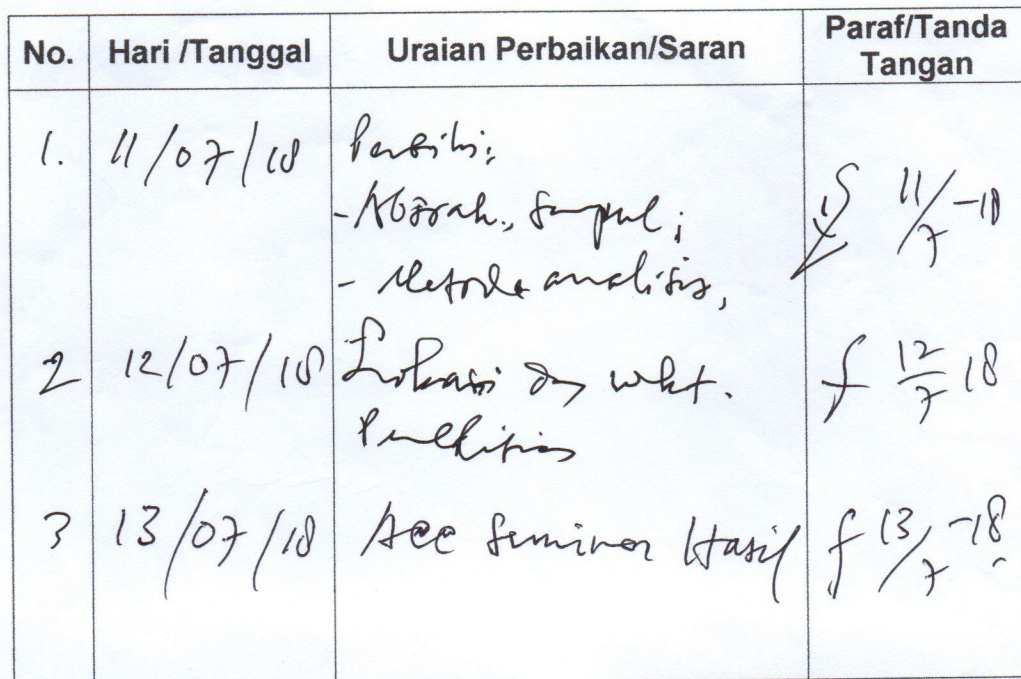 No. Hari /Tanggal Uraian Perbaikan/Saran Paraf/Tanda Tangan
1. 11/07/18 Perbaiki:
- Abstrak, Simpul; 11/7-18
- Metode analisis,
2 12/07/18 Lokasi dg wkt. 12/7 18
Penelitian
3 13/07/18 Acc Seminar Hasil 13/7-18